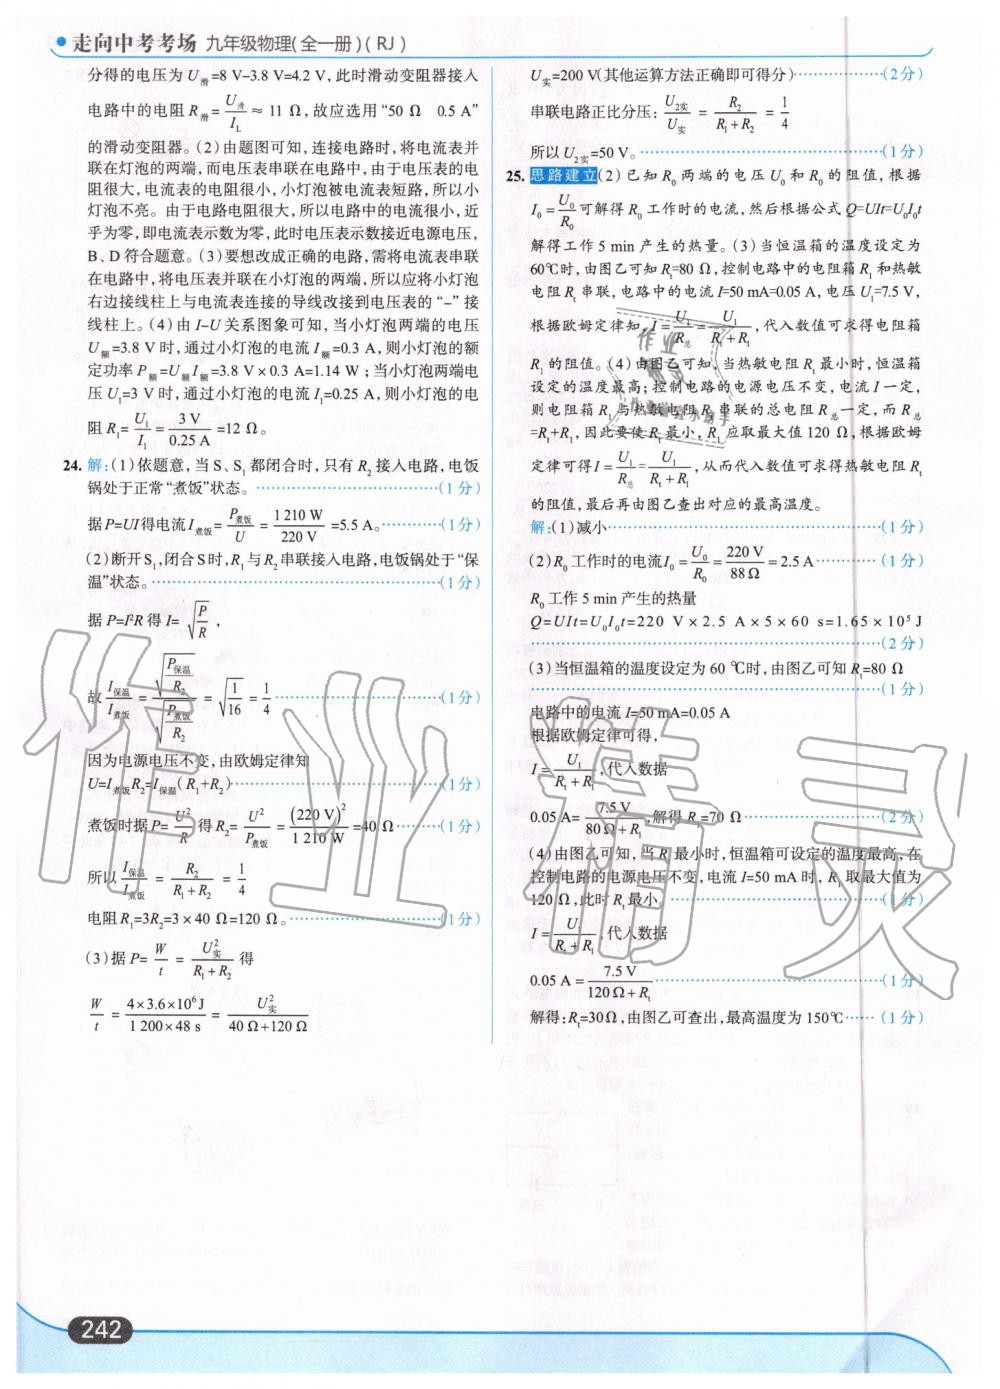 走向中考考场 九年级物理(全一册)(RJ)
分得的电压为U滑=8 V-3.8 V=4.2 V,此时滑动变阻器接入
电路中的电阻R滑=U滑/I_L≈11 Ω,故应选用“50 Ω 0.5 A”
的滑动变阻器。(2)由题图可知,连接电路时,将电流表并
联在灯泡的两端,而电压表串联在电路中,由于电压表的电
阻很大,电流表的电阻很小,小灯泡被电流表短路,所以小
灯泡不亮。由于电路电阻很大,所以电路中的电流很小,近
乎为零,即电流表示数为零,此时电压表示数接近电源电压,
B、D符合题意。(3)要想改成正确的电路,需将电流表串联
在电路中,将电压表并联在小灯泡的两端,所以应将小灯泡
右边接线柱上与电流表连接的导线改接到电压表的“-”接
线柱上。(4)由I-U关系图象可知,当小灯泡两端的电压
U额=3.8 V时,通过小灯泡的电流I额=0.3 A,则小灯泡的额
定功率P额=U额I额=3.8 V×0.3 A=1.14 W;当小灯泡两端电
压U₁=3 V时,通过小灯泡的电流I₁=0.25 A,则小灯泡的电
阻R₁=U₁/I₁=3 V/0.25 A=12 Ω。
24. 解:(1)依题意,当S、S₁都闭合时,只有R₂接入电路,电饭
锅处于正常“煮饭”状态。……(1分)
据P=UI得电流I煮饭=P煮饭/U=1 210 W/220 V=5.5 A。……(1分)
(2)断开S₁,闭合S时,R₁与R₂串联接入电路,电饭锅处于“保
温”状态。……(1分)
据P=I²R得I=√(P/R),
故I保温/I煮饭=√(P保温/R₂)/√(P煮饭/R₂)=√(1/16)=1/4……(1分)
因为电源电压不变,由欧姆定律知
U=I煮饭R₂=I保温(R₁+R₂)……(1分)
煮饭时据P=U²/R得R₂=U²/P煮饭=(220 V)²/1 210 W=40 Ω……(1分)
所以I保温/I煮饭=R₂/(R₁+R₂)=1/4
电阻R₁=3R₂=3×40 Ω=120 Ω。……(1分)
(3)据P=W/t=U实²/(R₁+R₂)得
W/t=4×3.6×10⁶J/(1 200×48 s)=U实²/(40 Ω+120 Ω)
U实=200 V(其他运算方法正确即可得分)……(2分)
串联电路正比分压:U₂实/U实=R₂/(R₁+R₂)=1/4
所以U₂实=50 V。……(1分)
25. 思路建立(2)已知R₀两端的电压U₀和R₀的阻值,根据
I₀=U₀/R₀可解得R₀工作时的电流,然后根据公式Q=UIt=U₀I₀t
解得工作5 min产生的热量。(3)当恒温箱的温度设定为
60℃时,由图乙可知Rt=80 Ω,控制电路中的电阻箱R₁和热敏
电阻Rt串联,电路中的电流I=50 mA=0.05 A,电压U₁=7.5 V,
根据欧姆定律知,I=U₁/R总=U₁/(R₁+Rt),代入数值可求得电阻箱
R₁的阻值。(4)由图乙可知,当热敏电阻Rt最小时,恒温箱
设定的温度最高;控制电路的电源电压不变,电流I一定,
则电阻箱R₁与热敏电阻Rt串联的总电阻R总一定,而R总
=Rt+R₁,因此要使Rt最小,R₁应取最大值120 Ω,根据欧姆
定律可得I=U₁/R总=U₁/(R₁+Rt),从而代入数值可求得热敏电阻Rt
的阻值,最后再由图乙查出对应的最高温度。
解:(1)减小……(1分)
(2)R₀工作时的电流I₀=U₀/R₀=220 V/88 Ω=2.5 A……(1分)
R₀工作5 min产生的热量
Q=UIt=U₀I₀t=220 V×2.5 A×5×60 s=1.65×10⁵ J
……(2分)
(3)当恒温箱的温度设定为60℃时,由图乙可知Rt=80 Ω
……(1分)
电路中的电流I=50 mA=0.05 A
根据欧姆定律可得,
I=U₁/(Rt+R₁),代入数据
0.05 A=7.5 V/(80 Ω+R₁),解得R₁=70 Ω……(2分)
(4)由图乙可知,当Rt最小时,恒温箱可设定的温度最高,在
控制电路的电源电压不变,电流I=50 mA时,R₁取最大值为
120 Ω,此时Rt最小。……(1分)
I=U/(R₁+Rt),代入数据
0.05 A=7.5 V/(120 Ω+Rt)……(1分)
解得:Rt=30Ω,由图乙可查出,最高温度为150℃……(1分)
242
作业精灵